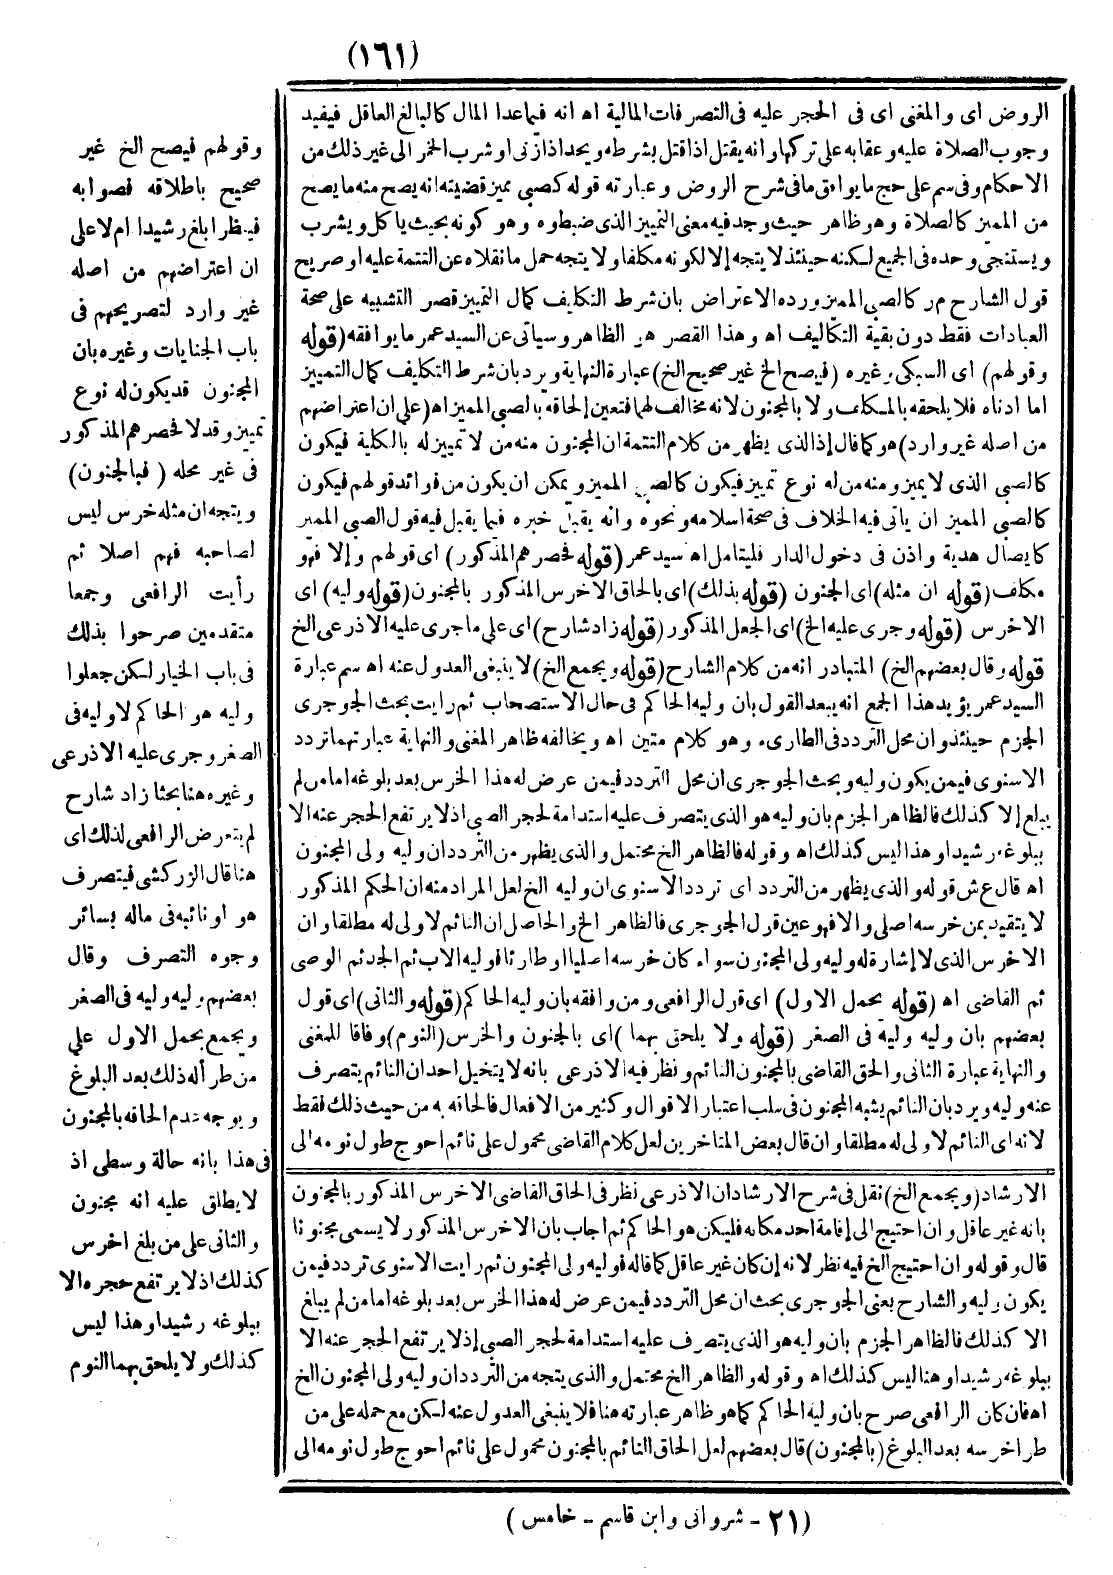 (١٦١)
الروض اى والمغنى اى فى الحجر عليه فى التصرفات المالية اه انه فيما عدا المال كالبالغ العاقل فيفيد
وجوب الصلاة عليه وعقابه على تركها وانه يقتل اذا قتل بشرطه ويحد اذا زنى او شرب الخمر الى غير ذلك من
الاحكام وفى سم على حج ما يوافق ما فى شرح الروض وعبارته قوله كصبى مميز قضيته انه يصح منه ما يصح
من المميز كالصلاة وهو ظاهر حيث وجد فيه معنى التمييز الذى ضبطوه وهو كونه بحيث يأكل ويشرب
ويستنجى وحده فى الجميع لكنه حينئذ لا يتجه إلا لكونه مكلفا ولا يتجه حمل ما نقلاه عن التتمة عليه او صريح
قول الشارح مر كالصبى المميز ورده الاعتراض بان شرط التكليف كمال التمييز قصر التشبيه على صحة
العبادات فقط دون بقية التكاليف اه وهذا القصر هو الظاهر وسيأتى عن السيد عمر ما يوافقه (قوله
وقولهم) اى السبكى وغيره (فيصح الخ غير صحيح الخ) عبارة النهاية ويرد بان شرط التكليف كمال التمييز
اما ادناه فلا يلحقه بالمكلف ولا بالمجنون لانه مخالف لهما فتعين إلحاقه بالصبى المميز اه (على ان اعتراضهم
من اصله غير وارد) هو كما قال إذ الذى يظهر من كلام التتمة ان المجنون منه من لا تمييز له بالكلية فيكون
كالصبى الذى لا يميز ومنه من له نوع تمييز فيكون كالصبى المميز ويمكن ان يكون من فوائد قولهم فيكون
كالصبى المميز ان يأتى فيه الخلاف فى صحة اسلامه ونحوه وانه يقبل خبره فيما يقبل فيه قول الصبى المميز
كايصال هدية واذن فى دخول الدار فليتامل اه سيد عمر (قوله فحصرهم المذكور) اى قولهم وإلا فهو
مكلف (قوله ان مثله) اى الجنون (قوله بذلك) اى بالحاق الاخرس المذكور بالمجنون (قوله وليه) اى
الاخرس (قوله وجرى عليه الخ) اى الجعل المذكور (قوله زاد شارح) اى على ما جرى عليه الاذرعى الخ
قوله وقال بعضهم الخ) المتبادر انه من كلام الشارح (قوله ويجمع الخ) لا ينبغى العدول عنه اه سم عبارة
السيد عمر يؤيد هذا الجمع انه يبعد القول بان وليه الحاكم فى حال الاستصحاب ثم رايت بحث الجوجرى
الجزم حينئذ وان محل التردد فى الطارىء وهو كلام متين اه ويخالفه ظاهر المغنى والنهاية عبارتهما تردد
الاسنوى فيمن يكون وليه وبحث الجوجرى ان محل التردد فيمن عرض له هذا الخرس بعد بلوغه اما من لم
يبلغ إلا كذلك فالظاهر الجزم بان وليه هو الذى يتصرف عليه استدامة لحجر الصبى اذ لا يرتفع الحجر عنه الا
ببلوغه رشيدا وهذا ليس كذلك اه وقوله فالظاهر الخ محتمل والذى يظهر من التردد ان وليه ولى المجنون
اه قال ع ش قوله والذى يظهر من التردد اى تردد الاسنوى ان وليه الخ لعل المراد منه ان الحكم المذكور
لا يتقيد بمن خرسه اصلى والا فهو عين قول الجوجرى فالظاهر الخ والحاصل ان النائم لا ولى له مطلقا وان
الاخرس الذى لا إشارة له وليه ولى المجنون سواء كان خرسه اصليا او طارئا فوليه الاب ثم الجد ثم الوصى
ثم القاضى اه (قوله بحمل الاول) اى قول الرافعى ومن وافقه بان وليه الحاكم (قوله والثانى) اى قول
بعضهم بان وليه وليه فى الصغر (قوله ولا يلحق بهما) اى بالجنون والخرس (النوم) وفاقا للمغنى
والنهاية عبارة الثانى والحق القاضى بالمجنون النائم ونظر فيه الاذرعى بانه لا يتخيل احد ان النائم يتصرف
عنه وليه ويرد بان النائم يشبه المجنون فى سلب اعتبار الاقوال وكثير من الافعال فالحاقه به من حيث ذلك فقط
لانه اى النائم لا ولى له مطلقا وان قال بعض المتاخرين لعل كلام القاضى محمول على نائم احوج طول نومه الى
الارشاد (ويجمع الخ) نقل فى شرح الارشاد ان الاذرعى نظر فى الحاق القاضى الاخرس المذكور بالمجنون
بانه غير عاقل وان احتيج الى إقامة احد مكانه فليكن هو الحاكم ثم اجاب بان الاخرس المذكور لا يسمى مجنونا
قال وقوله وان احتيج الخ فيه نظر لانه إن كان غير عاقل كما قاله فوليه ولى المجنون ثم رايت الاسنوى تردد فيمن
يكون وليه والشارح يعنى الجوجرى بحث ان محل التردد فيمن عرض له هذا الخرس بعد بلوغه اما من لم يبلغ
الا كذلك فالظاهر الجزم بان وليه هو الذى يتصرف عليه استدامة لحجر الصبى إذ لا يرتفع الحجر عنه الا
ببلوغه رشيدا وهنا ليس كذلك اه وقوله والظاهر الخ محتمل والذى يتجه من التردد ان وليه ولى المجنون الخ
اه فان كان الرافعى صرح بان وليه الحاكم كما هو ظاهر عبارته هنا فلا ينبغى العدول عنه لكن مع حمله على من
طرا خرسه بعد البلوغ (بالمجنون) قال بعضهم لعل الحاق النائم بالمجنون محمول على نائم احوج طول نومه الى
وقولهم فيصح الخ غير
صحيح باطلاقه فصوابه
فينظر ابلغ رشيدا ام لا على
ان اعتراضهم من اصله
غير وارد لتصريحهم فى
باب الجنايات وغيره بان
المجنون قد يكون له نوع
تمييز وقد لا فحصرهم المذكور
فى غير محله (فبالجنون)
ويتجه ان مثله خرس ليس
لصاحبه فهم اصلا ثم
رأيت الرافعى وجمعا
متقدمين صرحوا بذلك
فى باب الخيار لكن جعلوا
وليه هو الحاكم لا وليه فى
الصغر وجرى عليه الاذرعى
وغيره هنا بحثا زاد شارح
لم يتعرض الرافعى لذلك اى
هنا قال الزركشى فيتصرف
هو او نائبه فى ماله بسائر
وجوه التصرف وقال
بعضهم وليه وليه فى الصغر
ويجمع بحمل الاول على
من طرأ له ذلك بعد البلوغ
ويوجه بعدم الحاقه بالمجنون
فى هذا بانه حالة وسطى اذ
لا يطلق عليه انه مجنون
والثانى على من بلغ اخرس
كذلك اذ لا يرتفع حجره الا
ببلوغه رشيدا وهذا ليس
كذلك ولا يلحق بهما النوم
(٢١ - شروانى وابن قاسم - خامس)